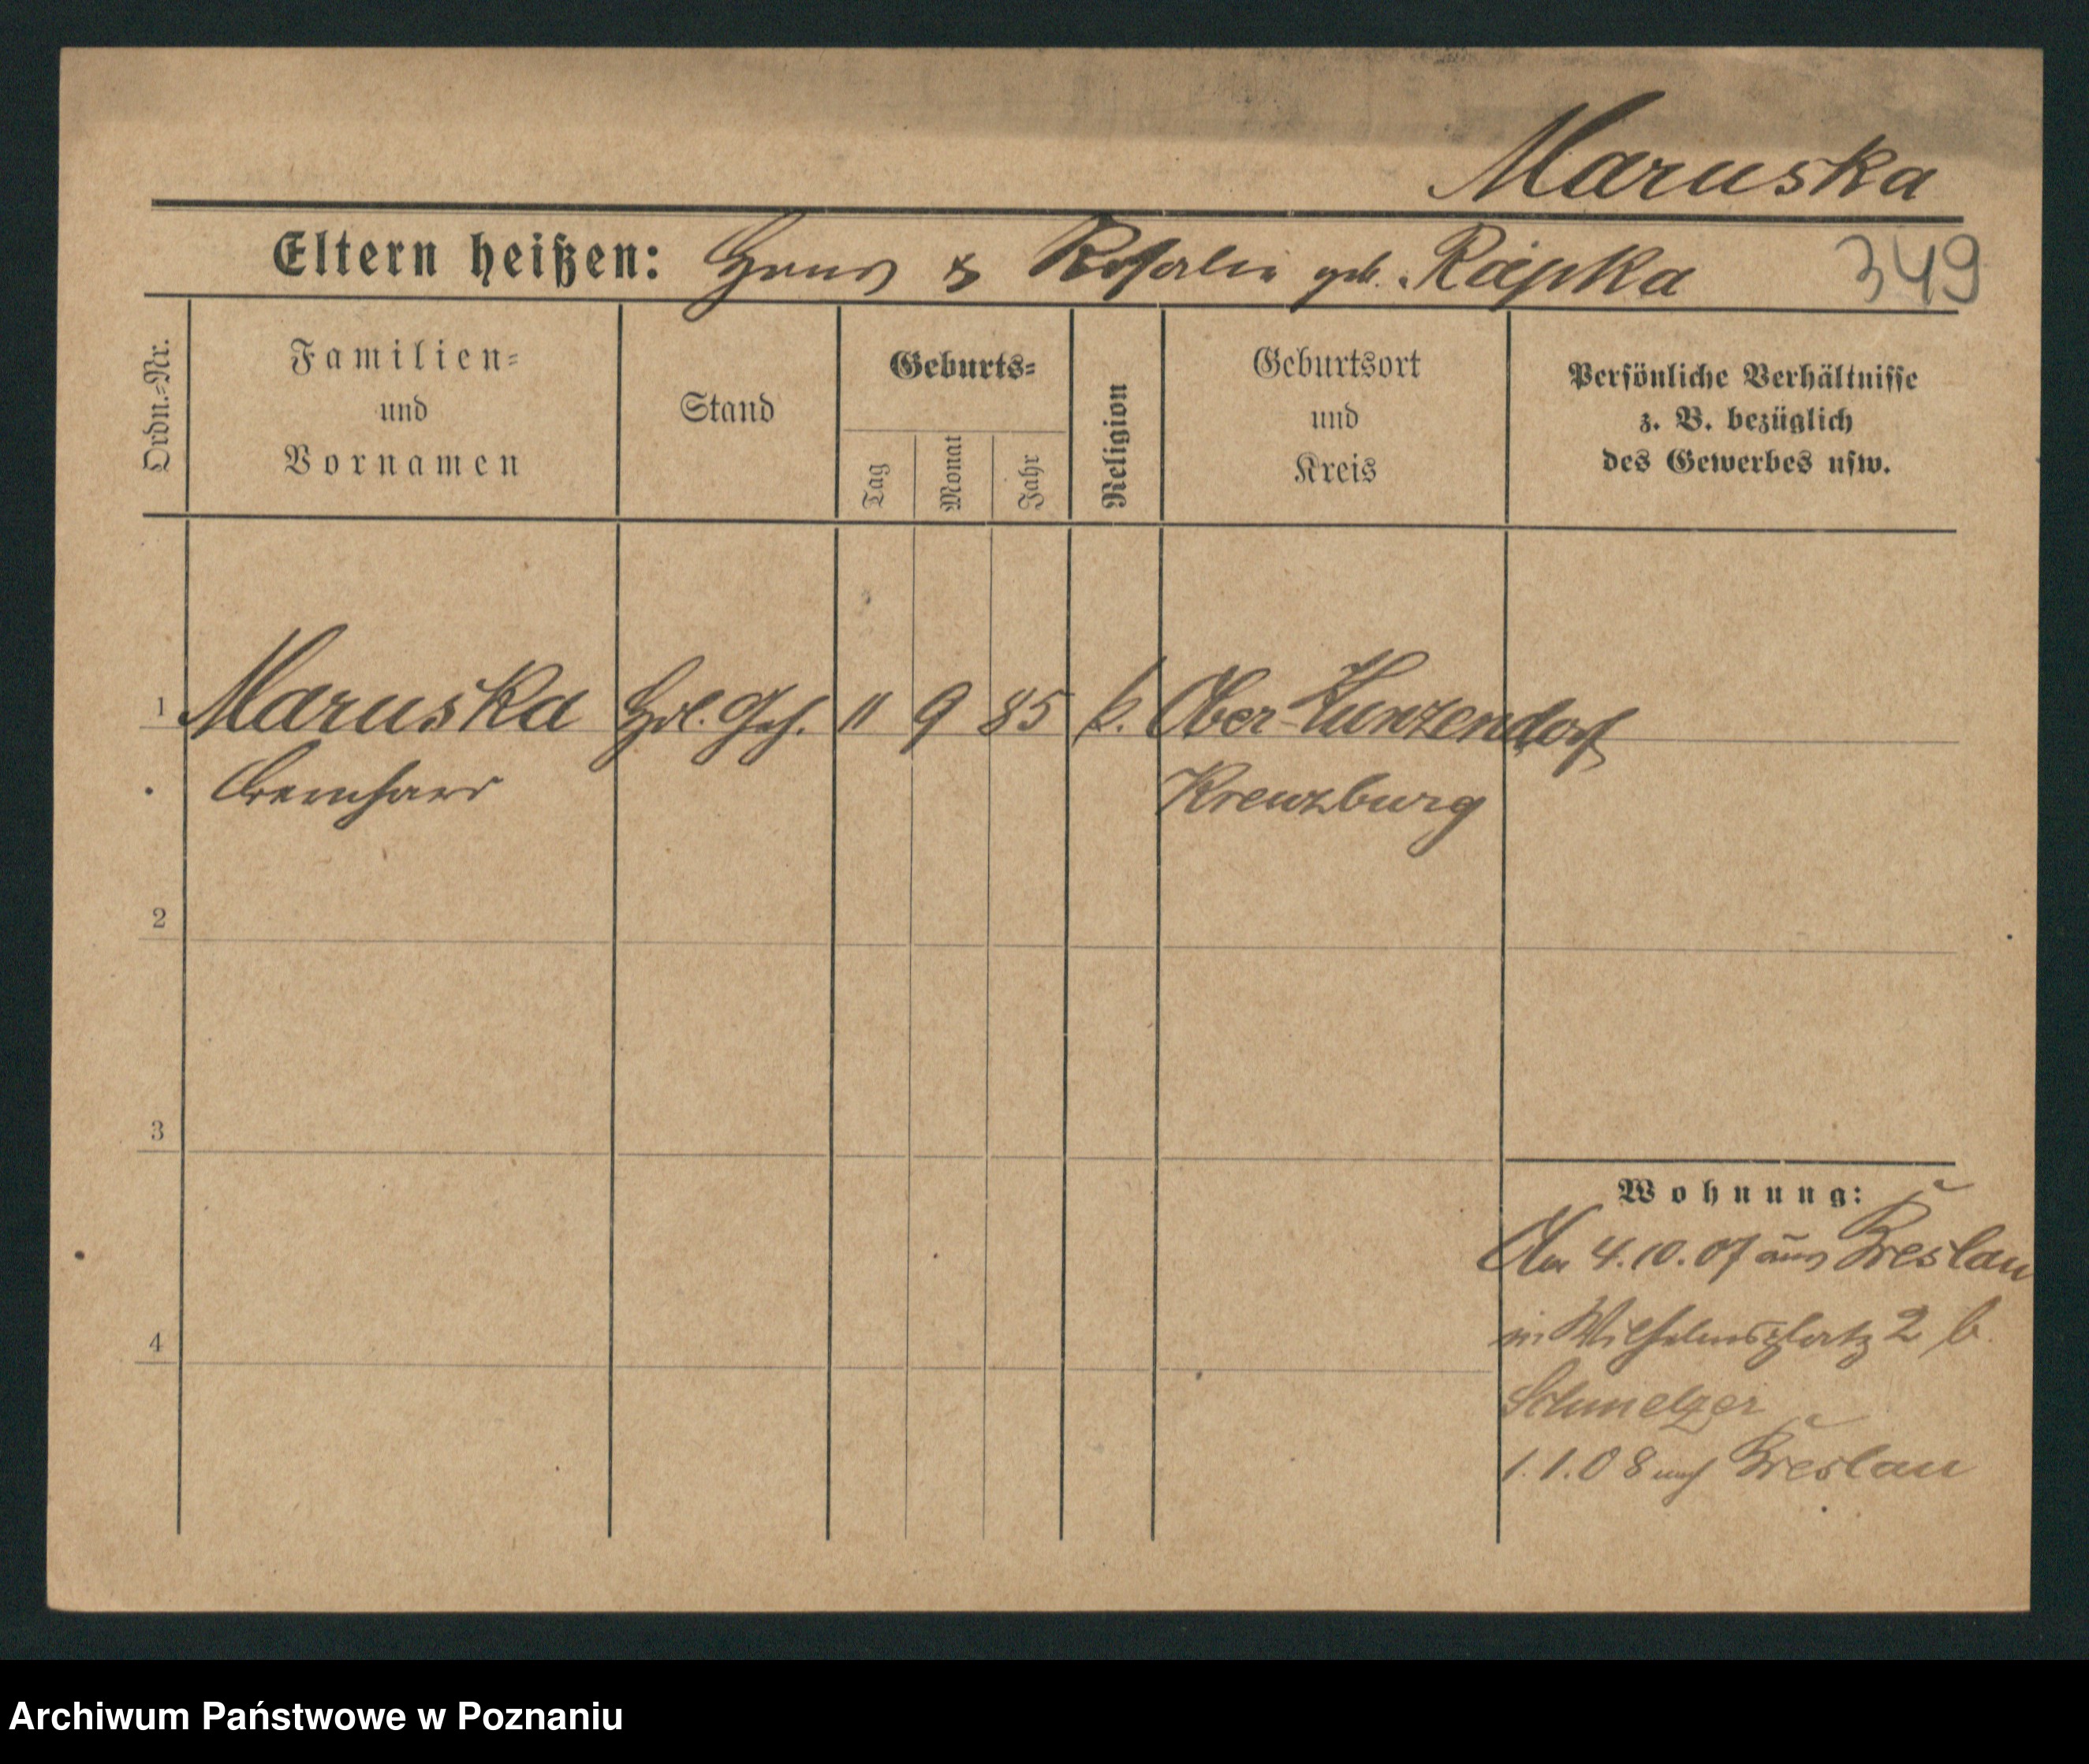 Maruska
Eltern heißen: Hans & Rosalia geb. Rapka 349
Ordn.=Nr.
Familien=
und
Vornamen
Stand
Geburts=
Tag
Monat
Jahr
Religion
Geburtsort
und
Kreis
Persönliche Verhältnisse
z. B. bezüglich
des Gewerbes usw.
1 Maruska Hdl. Geh. 11 9 85 k. Ober-Kunzendorf
Bernhard Kreuzburg
2
3
4
Wohnung:
Am 4.10.07 aus Breslau
in Wilhelmsplatz 2 b.
Schmelzer
1.1.08 nach Breslau
Archiwum Państwowe w Poznaniu